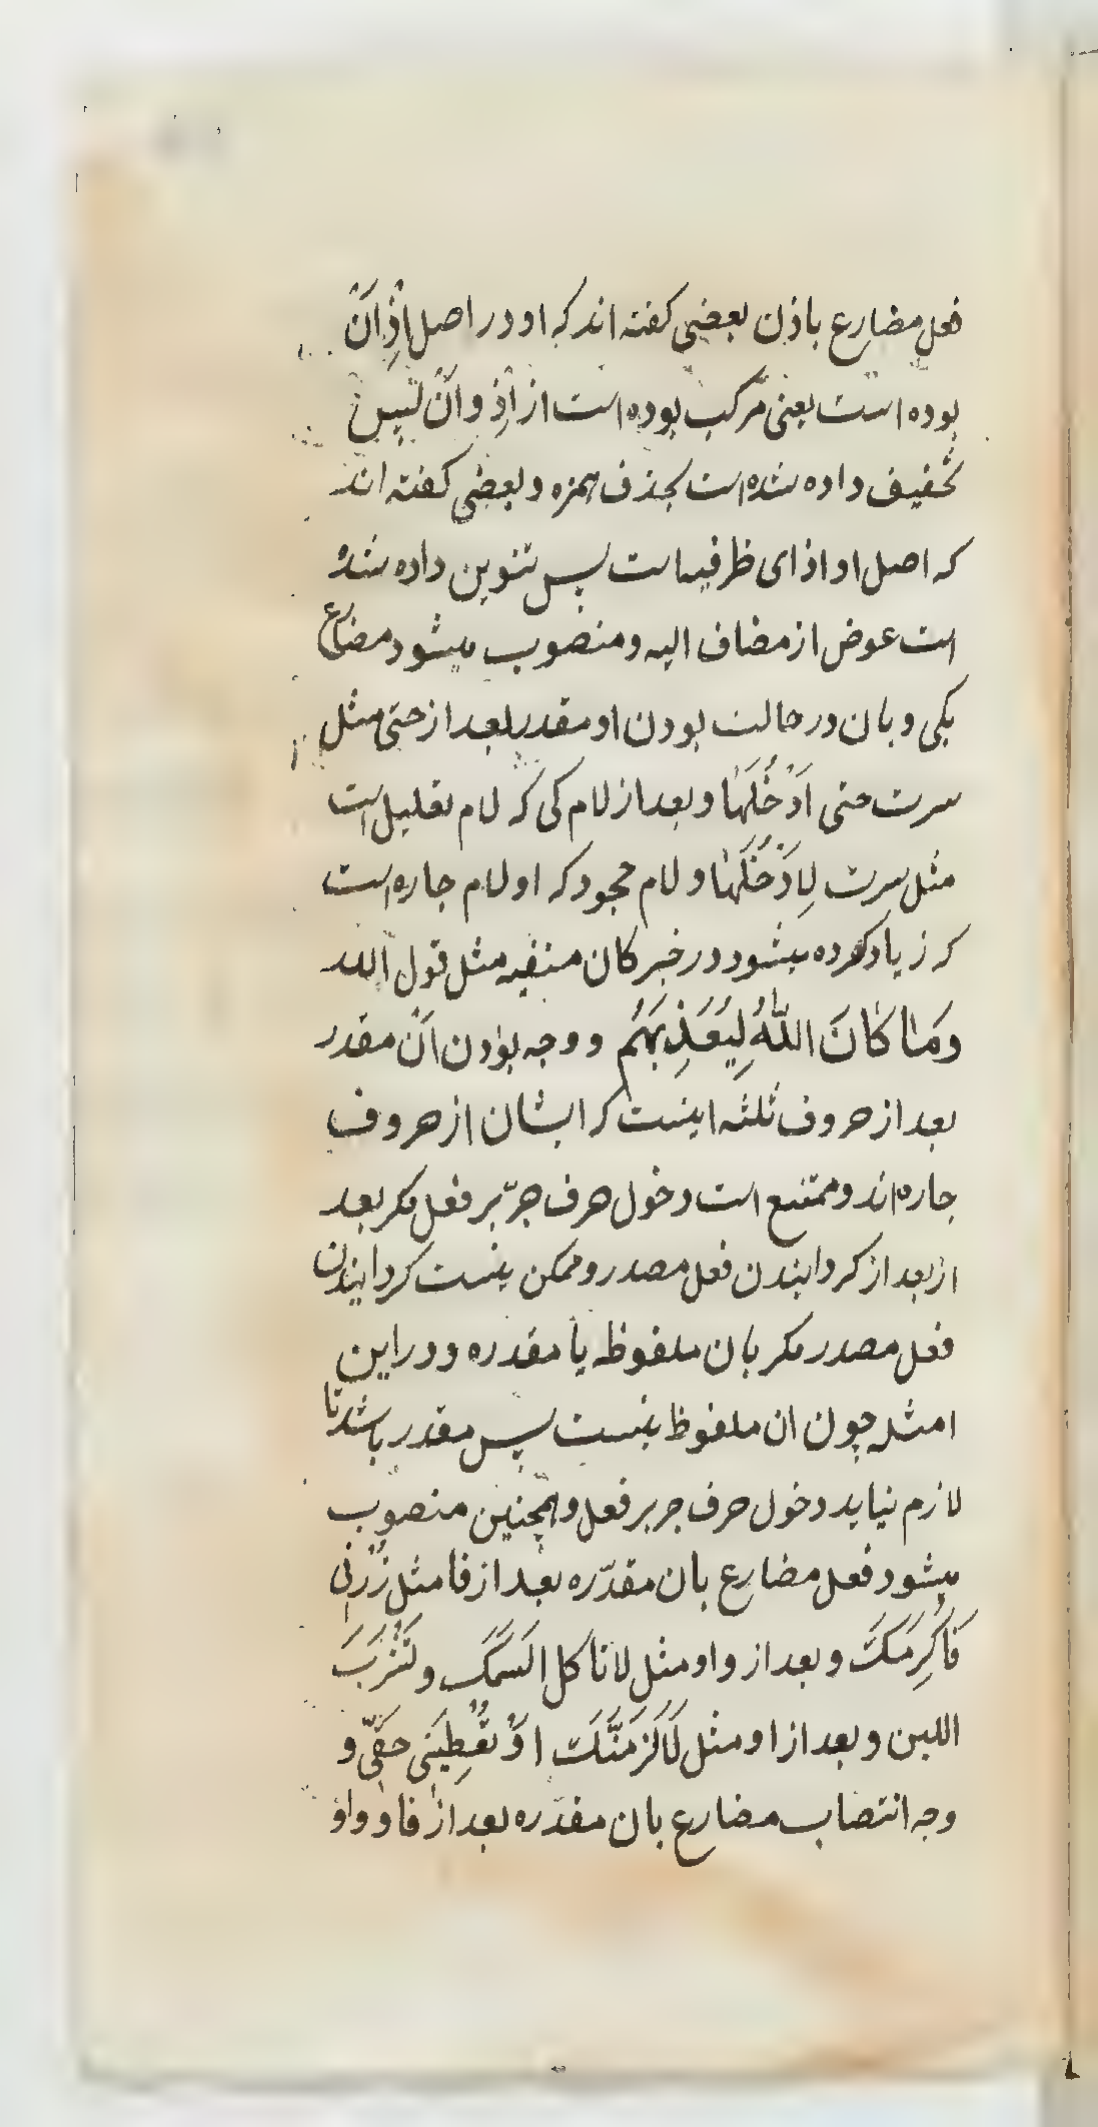 فعل مضارع باذن بعضی کفته اند که او در اصل اِذْ اَنْ
بوده است یعنی مرکب بوده است از اِذ و اَنْ پس
تخفیف داده شده است بحذف همزه و بعضی کفته اند
که اصل او اذای ظرفیه است پس تنوین داده شده
است عوض از مضاف الیه و منصوب میشود مضارع
بکی و بان در حالت بودن او مقدر بعد از حتی مثل
سرت حتی اَدْخُلَهٰا و بعد از لام کی که لام تعلیل است
مثل سرت لِاَدْخُلَهٰا و لام جحود که او لام جاره است
که زیاد کرده میشود در خبر کان منفیه مثل قول الله
وَمٰا کٰانَ اللّٰهُ لِیُعَذِّبَهُم و وجه بودن اَنْ مقدر
بعد از حروف ثلثه اینست که ایشان از حروف
جاره اند و ممتنع است دخول حرف جرّ بر فعل مکر بعد
از بعد از کردانیدن فعل مصدر و ممکن نیست کردانیدن
فعل مصدر مکر بان ملفوظه یا مقدره و در این
امثله چون ان ملفوظ نیست پس مقدر باشد تا
لازم نیاید دخول حرف جر بر فعل و همچنین منصوب
میشود فعل مضارع بان مقدّره بعد از فا مثل زُرْنی
فَاُکْرِمَکَ و بعد از واو مثل لا تاکل السَمَکَ و تَشْرَبَ
اللبن و بعد از او مثل لَاَلْزَمَنَّکَ اَوْ تُعْطِیَنی حَقّی و
وجه انتصاب مضارع بان مقدّره بعد از فا و واو